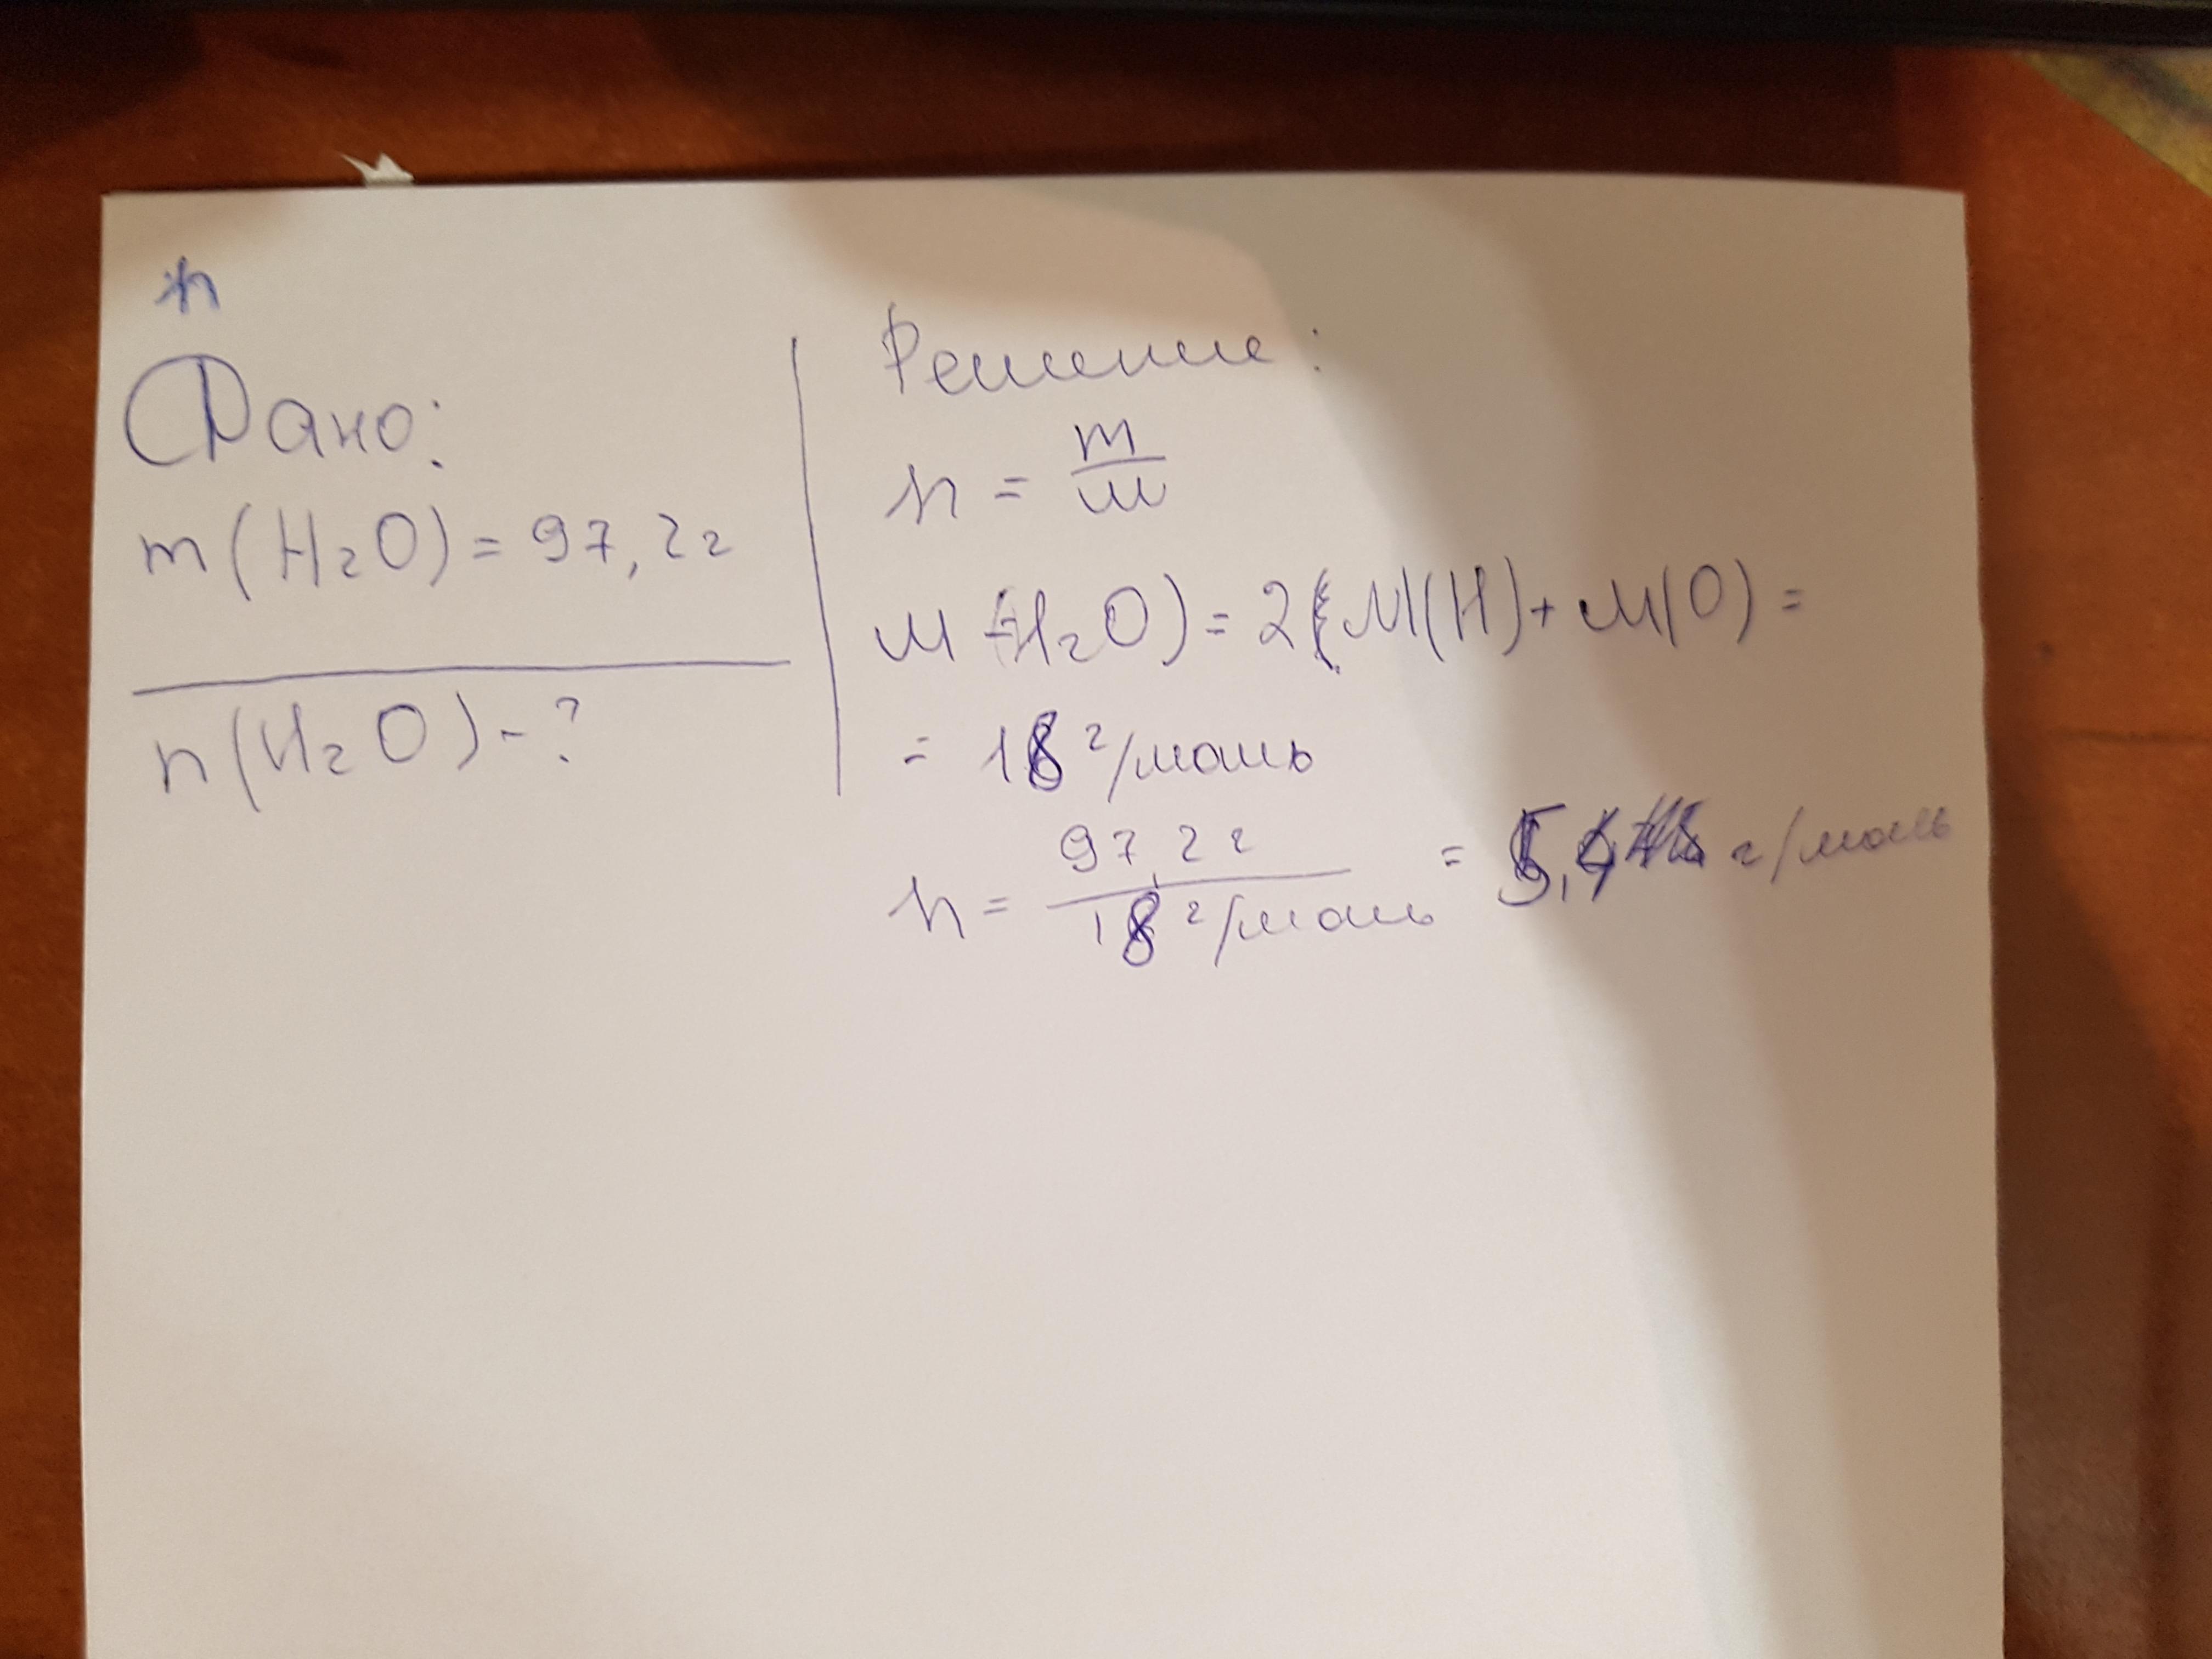 n
Дано:
m(H₂O) = 97,2г
n(H₂O) - ?
Решение:
n = m/M
M(H₂O) = 2M(H) + M(O) =
= 18 г/моль
n = 97,2г / 18 г/моль = 5,4 г/моль